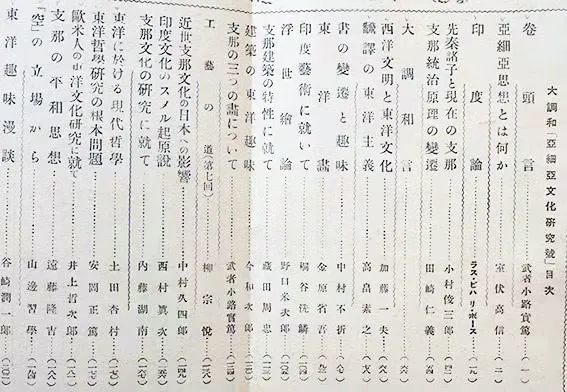 大調和「亞細亞文化研究號」目次
卷頭言…………武者小路實篤…(一)
亞細亞思想とは何か…………室伏高信…(二)
印度論…………ラス・ビハリ・ボース
先秦諸子と現在の支那…………小村俊三郎
支那統治原理の變遷…………田崎仁義
大調和言
西洋文明と東洋文化…………加藤一夫
飜譯の東洋主義…………高畠素之
書の變遷と趣味…………中村不折
東洋畵…………金原省吾
印度藝術に就いて…………桐谷洗鱗
浮世繪論…………野口米次郎
支那建築の特性に就て…………藏田周忠
建築の東洋趣味…………今和次郎
支那の三つの畵について…………武者小路實篤
工藝の道(第七回)…………柳宗悅
近世支那文化の日本への影響…………中村久四郎
印度文化のスメル起原說…………西村眞次
支那文化の研究に就て…………內藤湖南
東洋に於ける現代哲學…………土田杏村
東洋哲學研究の根本問題…………安岡正篤
歐米人の東洋文化研究に就て…………井上哲次郎
支那の平和思想…………遠藤隆吉
「空」の立場から…………山邊習學
東洋趣味漫談…………谷崎潤一郎